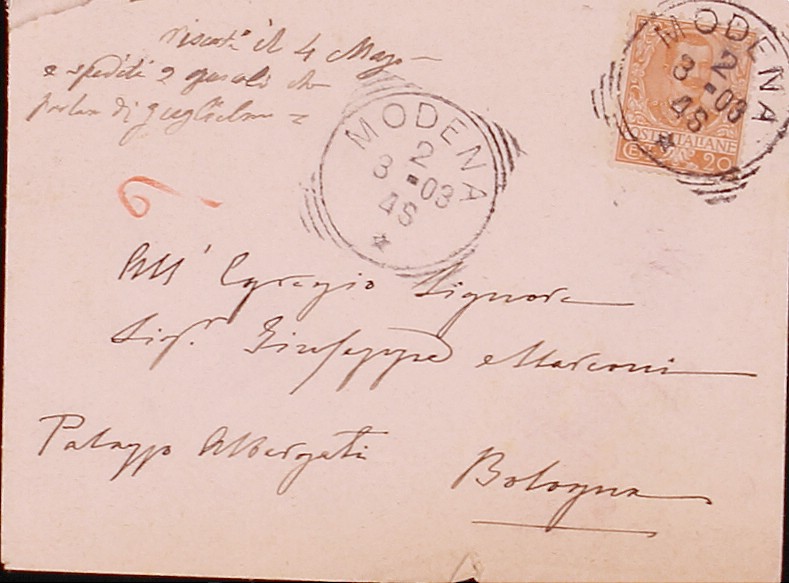 riscont.ⁿ il 4 Mago
e spediti 2 che
parlan di guglielmo =
MODENA
2
3 - 03
4S
MODENA
2
3 - 03
4S
POSTE ITALIANE
C 20
6
All' Egregio Signore
Sigʳ. Giuseppe Marconi
Palazzo Albergati
Bologna